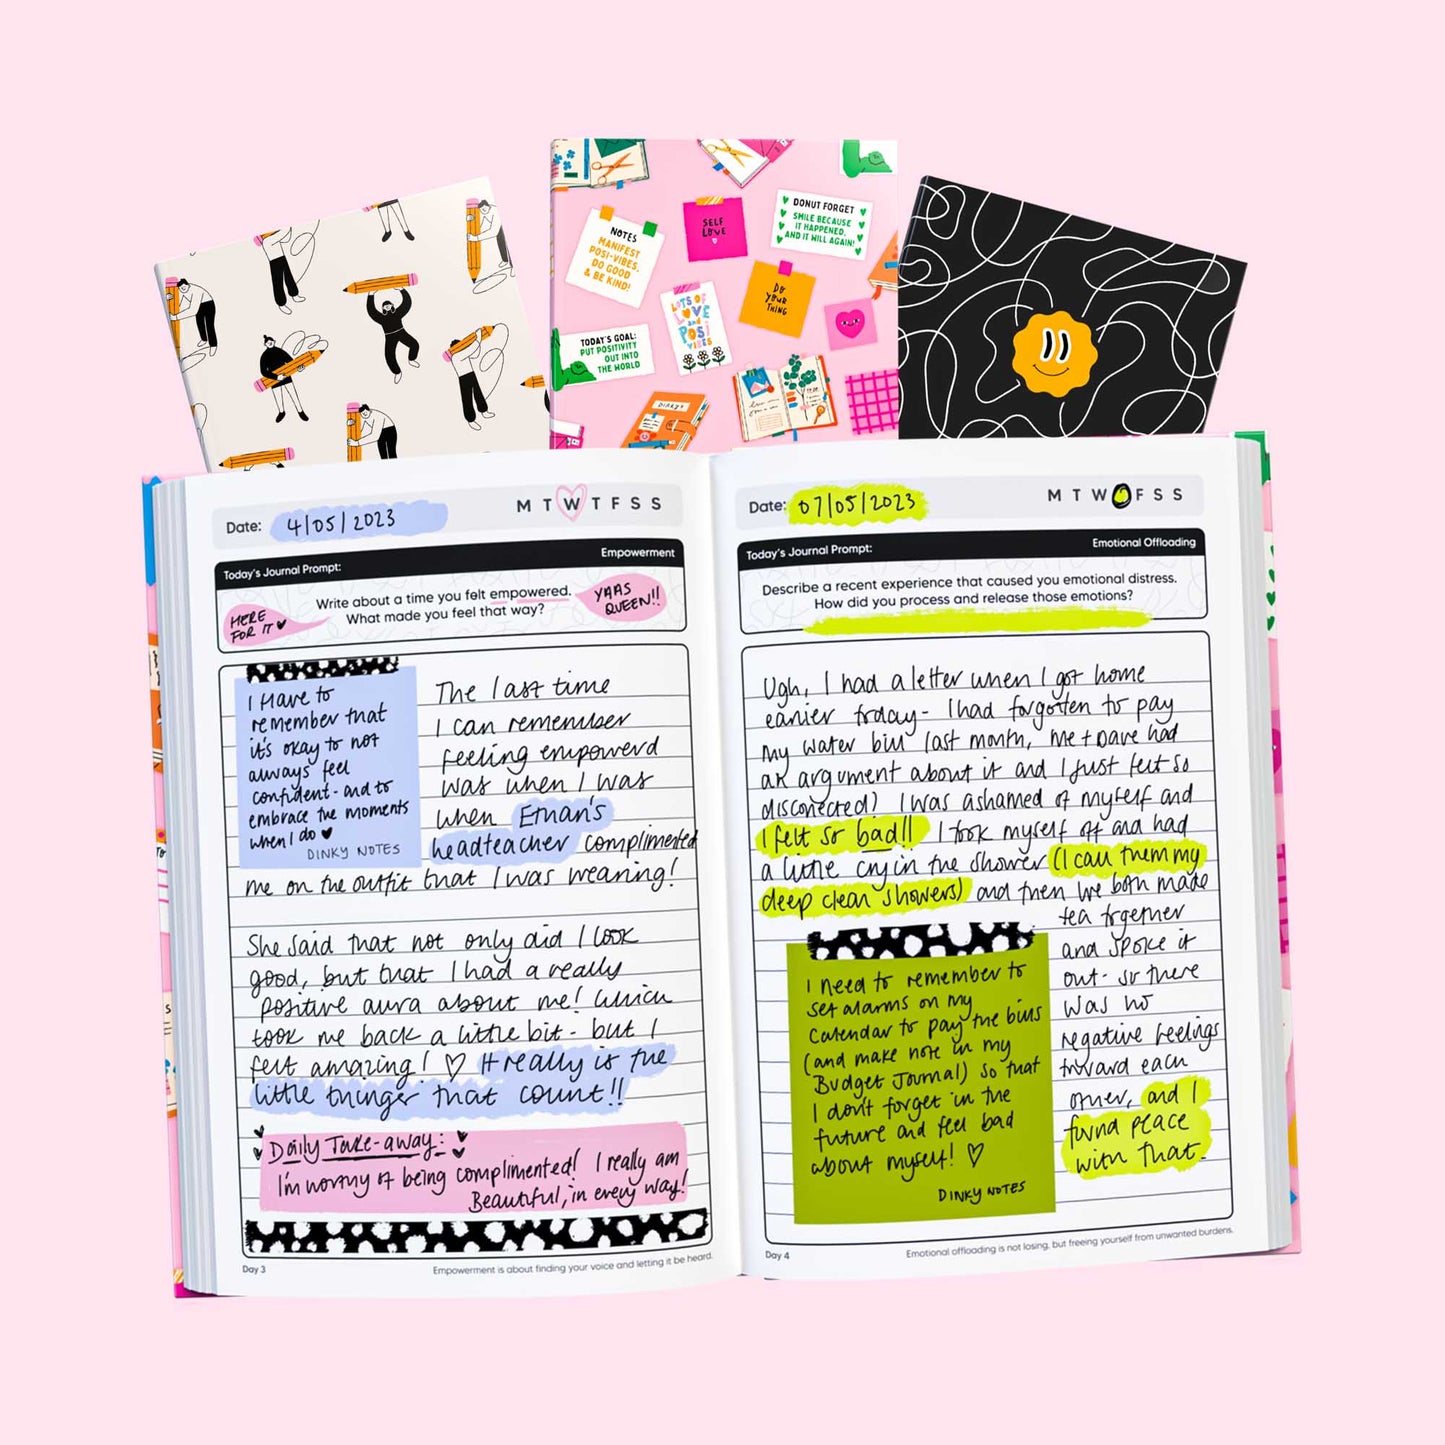 NOTES
MANIFEST
POSI-VIBES.
DO GOOD
& BE KIND!
SELF
LOVE
DONUT FORGET
SMILE BECAUSE
IT HAPPENED.
AND IT WILL AGAIN!
LOTS OF
LOVE
and
POSI
VIBES
DO
YOUR
THING
TODAY'S GOAL:
PUT POSITIVITY
OUT INTO
THE WORLD
DIARY
Date: 4/05/2023 M T W T F S S
Today's Journal Prompt: Empowerment
Write about a time you felt empowered.
What made you feel that way?
HERE
FOR IT
YAAS
QUEEN!!
I Have to
remember that
it's okay to not
always feel
confident - and to
embrace the moments
when I do ♥
DINKY NOTES
The last time
I can remember
feeling empowerd
was when I was
when Ethan's
headteacher complimented
me on the outfit that I was wearing!
She said that not only did I look
good, but that I had a really
positive aura about me! which
took me back a little bit - but I
felt amazing! ♡ It really is the
little things that count!!
Daily Take-away:
I'm worthy of being complimented! I really am
Beautiful, in every way!
Day 3 Empowerment is about finding your voice and letting it be heard.
Date: 07/05/2023 M T W T F S S
Today's Journal Prompt: Emotional Offloading
Describe a recent experience that caused you emotional distress.
How did you process and release those emotions?
Ugh, I had a letter when I got home
earlier today - I had forgotten to pay
my water bill last month, me + Dave had
an argument about it and I just felt so
disconected) I was ashamed of myself and
I felt so bad!! I took myself off and had
a little cry in the shower (I call them my
deep clean showers) and then we both made
tea together
and spoke it
out - so there
was no
negative feelings
toward each
other, and I
found peace
with that.
I need to remember to
set alarms on my
Calendar to pay the bills
(and make note in my
Budget Journal) so that
I don't forget in the
future and feel bad
about myself! ♡
DINKY NOTES
Day 4 Emotional offloading is not losing, but freeing yourself from unwanted burdens.